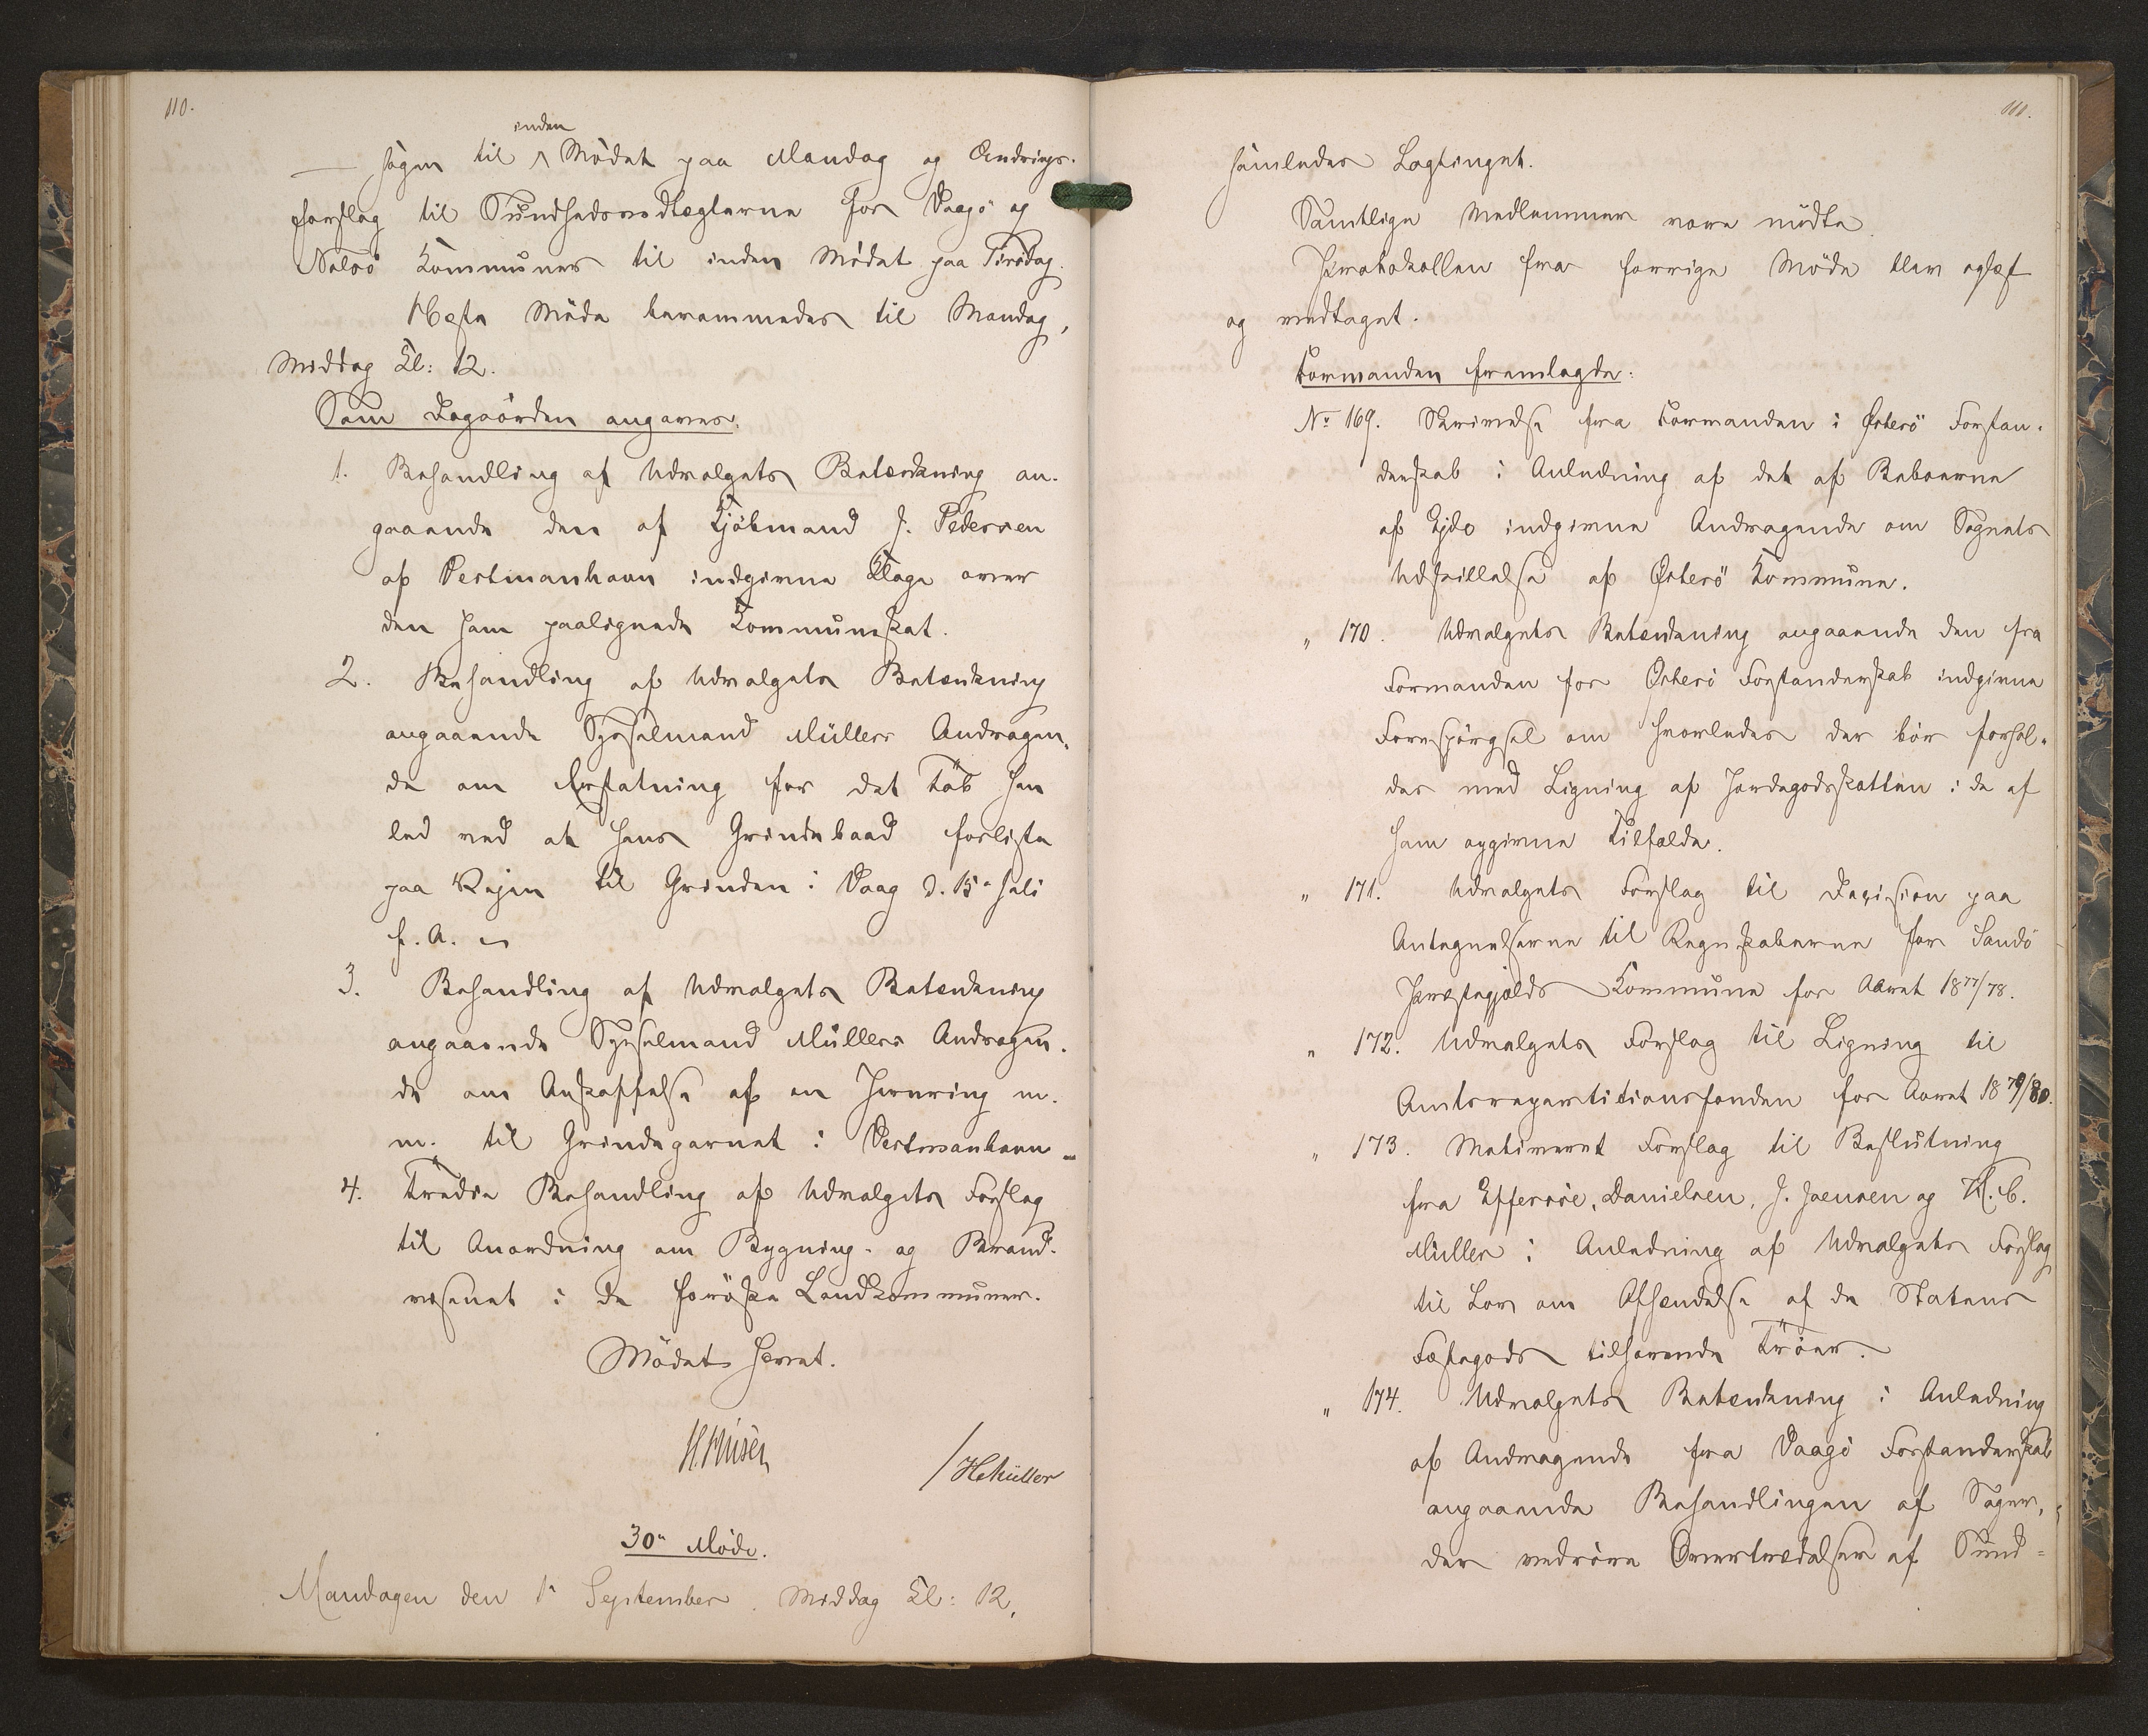 110.
inden
— sagen til ^ Mödet paa Mandag og Ændrings-
forslag til Sundhedsvedtægterne for Vaagö og
Nolsö Kommuner til inden Mödet paa Tirsdag.
Næste Möde berammedes til Mandag,
Middag Kl: 12.
Som Dagsorden angaves:
1. Behandling af Udvalgets Betænkning an-
gaaende den af Kjöbmand J. Petersen
af Vestmanhavn indgivne Klage over
den ham paalignede Kommuneskat.
2. Behandling af Udvalgets Betænkning
angaaende Sysselmand Müllers Andragen-
de om Erstatning for det Tab han
led ved at hans Grindebaad forliste
paa Rejen til Grinden i Vaag d. 15de Juli
f. A.
3. Behandling af Udvalgets Betænkning
angaaende Sysselmand Müllers Andragen-
de om Anskaffelse af en Jernring m.
m. til Grindegarnet i Vestmanhavn.
4. Tredie Behandling af Udvalgets Forslag
til Anordning om Bygning- og Brand-
væsenet i de færöske Landkommuner.
Mödet hævet.
HMüller
30te Möde.
Mandagen den 1ste September. Middag Kl: 12,
111.
samledes Lagtinget.
Samtlige Medlemmer vare mödte.
Protokollen fra forrige Möde blev oplæst
og vedtaget.
Formanden fremlagde:
No 169. Skrivelse fra Formanden i Österö Forstan-
derskab i Anledning af det af Beboerne
af Ejde indgivne Andragende om Sognets
Udskillelse af Österö Kommune.
" 170. Udvalgets Betænkning angaaende den fra
Formanden for Österö Forstanderskab indgivne
Forespörgsel om hvorledes der bör forhol-
des med Ligning af Jordegodsskatten i de af
ham opgivne Tilfælde.
" 171. Udvalgets Forslag til Decision paa
Antegnelserne til Regnskaberne for Sandö
Præstegjelds Kommune for Aaret 1877/78.
" 172. Udvalgets Forslag til Ligning til
Amtsrepartitionsfonden for Aaret 1879/80.
" 173. Motiveret Forslag til Beslutning
fra Effersöe, Danielsen, J. Joensen og H. C.
Müller i Anledning af Udvalgets Forslag
til Lov om Afhændelse af de Statens
Fæstegods tilhörende Tröer.
" 174. Udvalgets Betænkning i Anledning
af Andragende fra Vaagö Forstanderskab
angaaende Behandlingen af Sager,
der vedröre Overtrædelser af Sund-